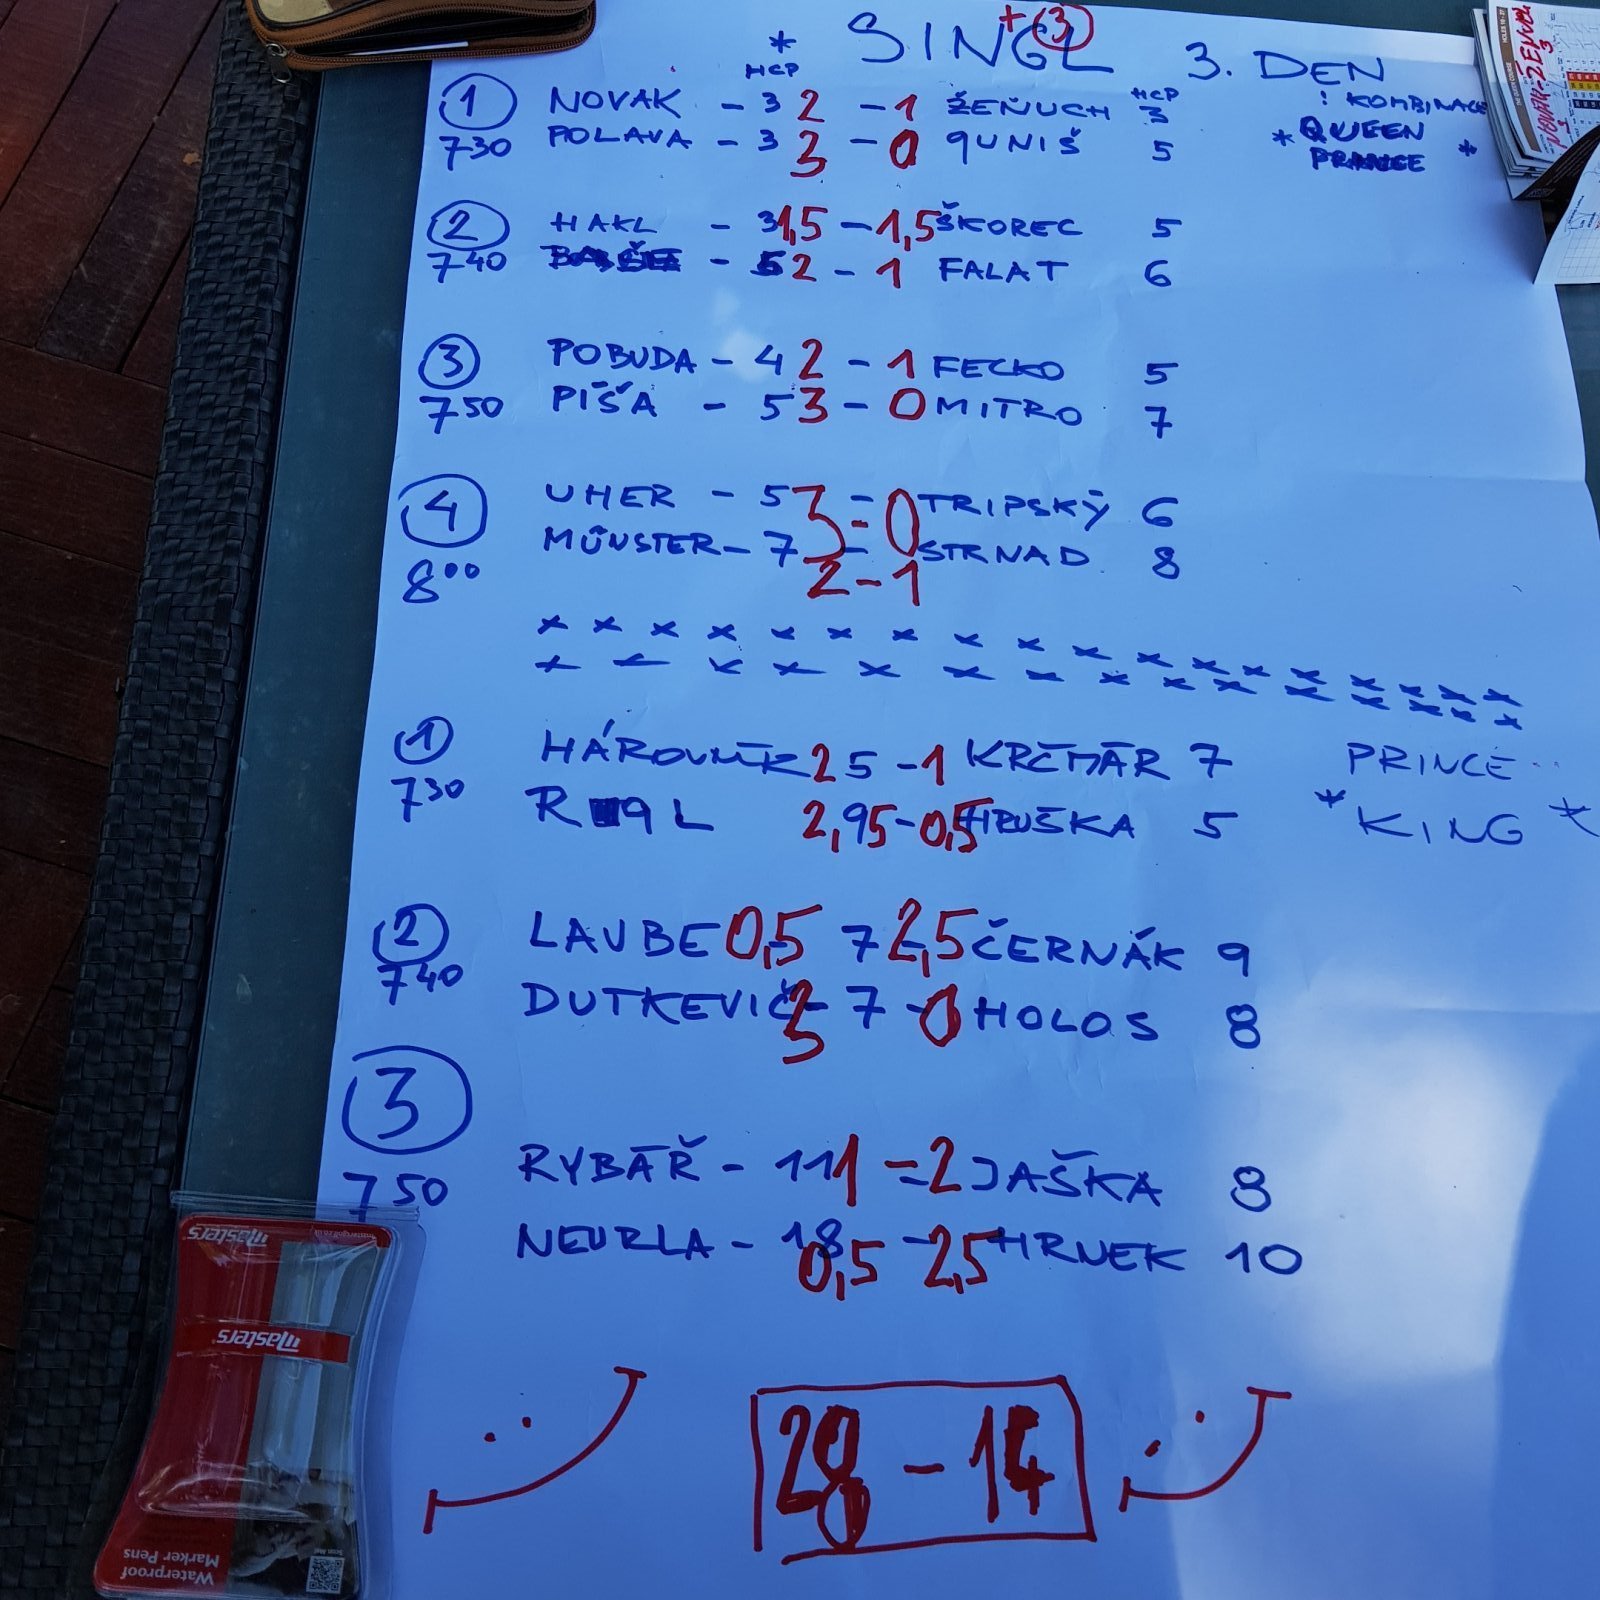 SINGL +3 3. DEN
* HCP HCP : KOMBINACE
1 NOVAK - 3 2 - 1 ŽEŇUCH 3 * QUEEN *
730 POLAVA - 3 3 - 0 QUNIŠ 5
2 HAKL - 3 1,5 - 1,5 ŠKOREC 5
740 - 2 - 1 FALAT 6
3 POBUDA - 4 2 - 1 FECKO 5
750 PÍŠA - 5 3 - 0 MITRO 7
4 UHER - 5 3 - 0 TRIPSKÝ 6
800 MÜNSTER - 7 - STRNAD 8
2 - 1
1 HÁROVNÍK 2 5 - 1 KRČMÁR 7 PRINCE
730 2,95 - 0,5 HRUŠKA 5 * KING *
2 LAUBE 0,5 7 2,5 ČERNÁK 9
740 DUTKEVIČ 3 - 7 - 0 HOLOS 8
3
RYBÁŘ - 11 1 = 2 JAŠKA 8
750
NEURLA - 18 0,5 - 2,5 HRNEK 10
28 - 14
Masters
Masters
Waterproof
Marker Pens